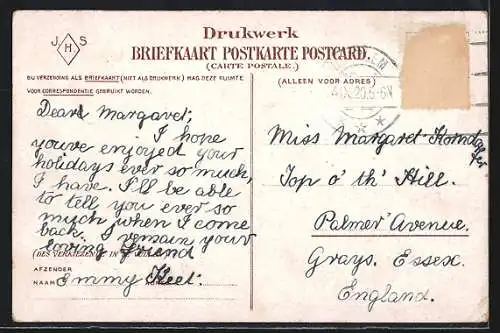 Drukwerk
BRIEFKAART POSTKARTE POSTCARD.
(CARTE POSTALE.)
J H S
BIJ VERZENDING ALS BRIEFKAART (NIET ALS DRUKWERK) MAG DEZE RUIMTE
VOOR CORRESPONDENTIE GEBRUIKT WORDEN.
(ALLEEN VOOR ADRES)
Dear Margaret,
I hope
youve enjoyed your
holidays ever so much,
I have. I'll be able
to tell you ever so
much when I come
back. I remain your
loving friend
AFZENDER
NAAM Emmy Keet.
Miss Margaret
Top o' th' Hill.
Palmer Avenue.
Grays. Essex.
England.